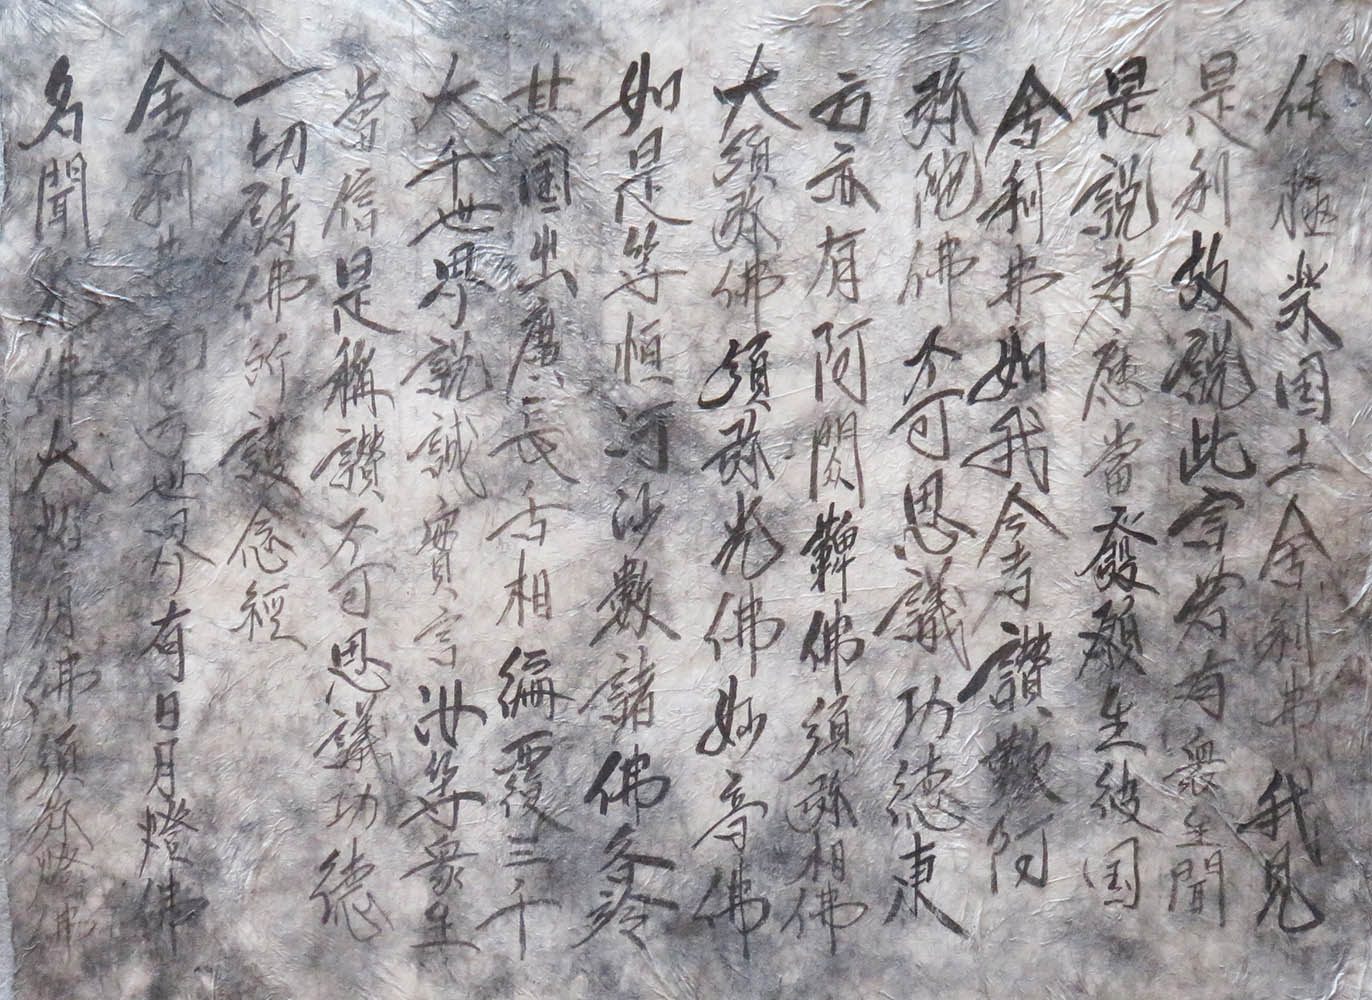 住極樂国土舍利弗我見
是利故說此言若有衆生聞
是說者應當發願生彼国
舍利弗如我今者讚歎阿
弥陀佛不可思議功德東
方亦有阿閦鞞佛須弥相佛
大須弥佛須弥光佛妙高佛
如是等恒河沙數諸佛各於
其国出廣長舌相徧覆三千
大千世界說誠實言汝等衆生
當信是稱讚不可思議功德
一切諸佛所護念經
舍利弗南方世界有日月燈佛
名聞光佛大焰肩佛須弥燈佛